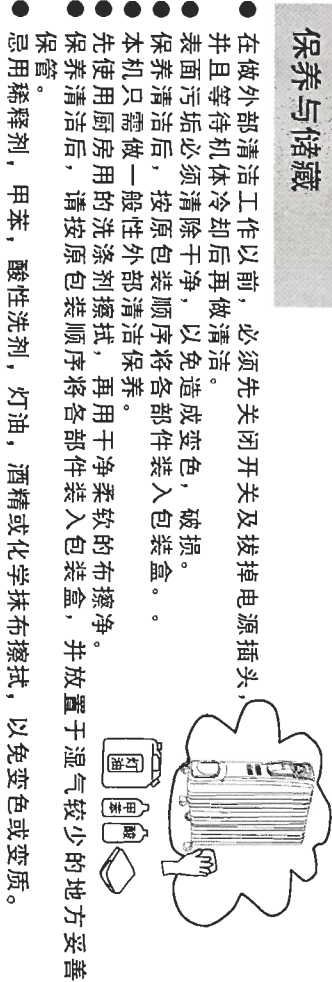 保养与储藏
● 在做外部清洁工作以前，必须先关闭开关及拔掉电源插头，
并且等待机体冷却后再做清洁。
● 表面污垢必须清除干净，以免造成变色，破损。
● 保养清洁后，按原包装顺序将各部件装入包装盒。。
● 本机只需做一般性外部清洁保养。
● 先使用厨房用的洗涤剂擦拭，再用干净柔软的布擦净。
● 保养清洁后，请按原包装顺序将各部件装入包装盒，并放置于湿气较少的地方妥善
保管。
● 忌用稀释剂，甲苯，酸性洗剂，灯油，酒精或化学抹布擦拭，以免变色或变质。
灯油
甲苯
酸